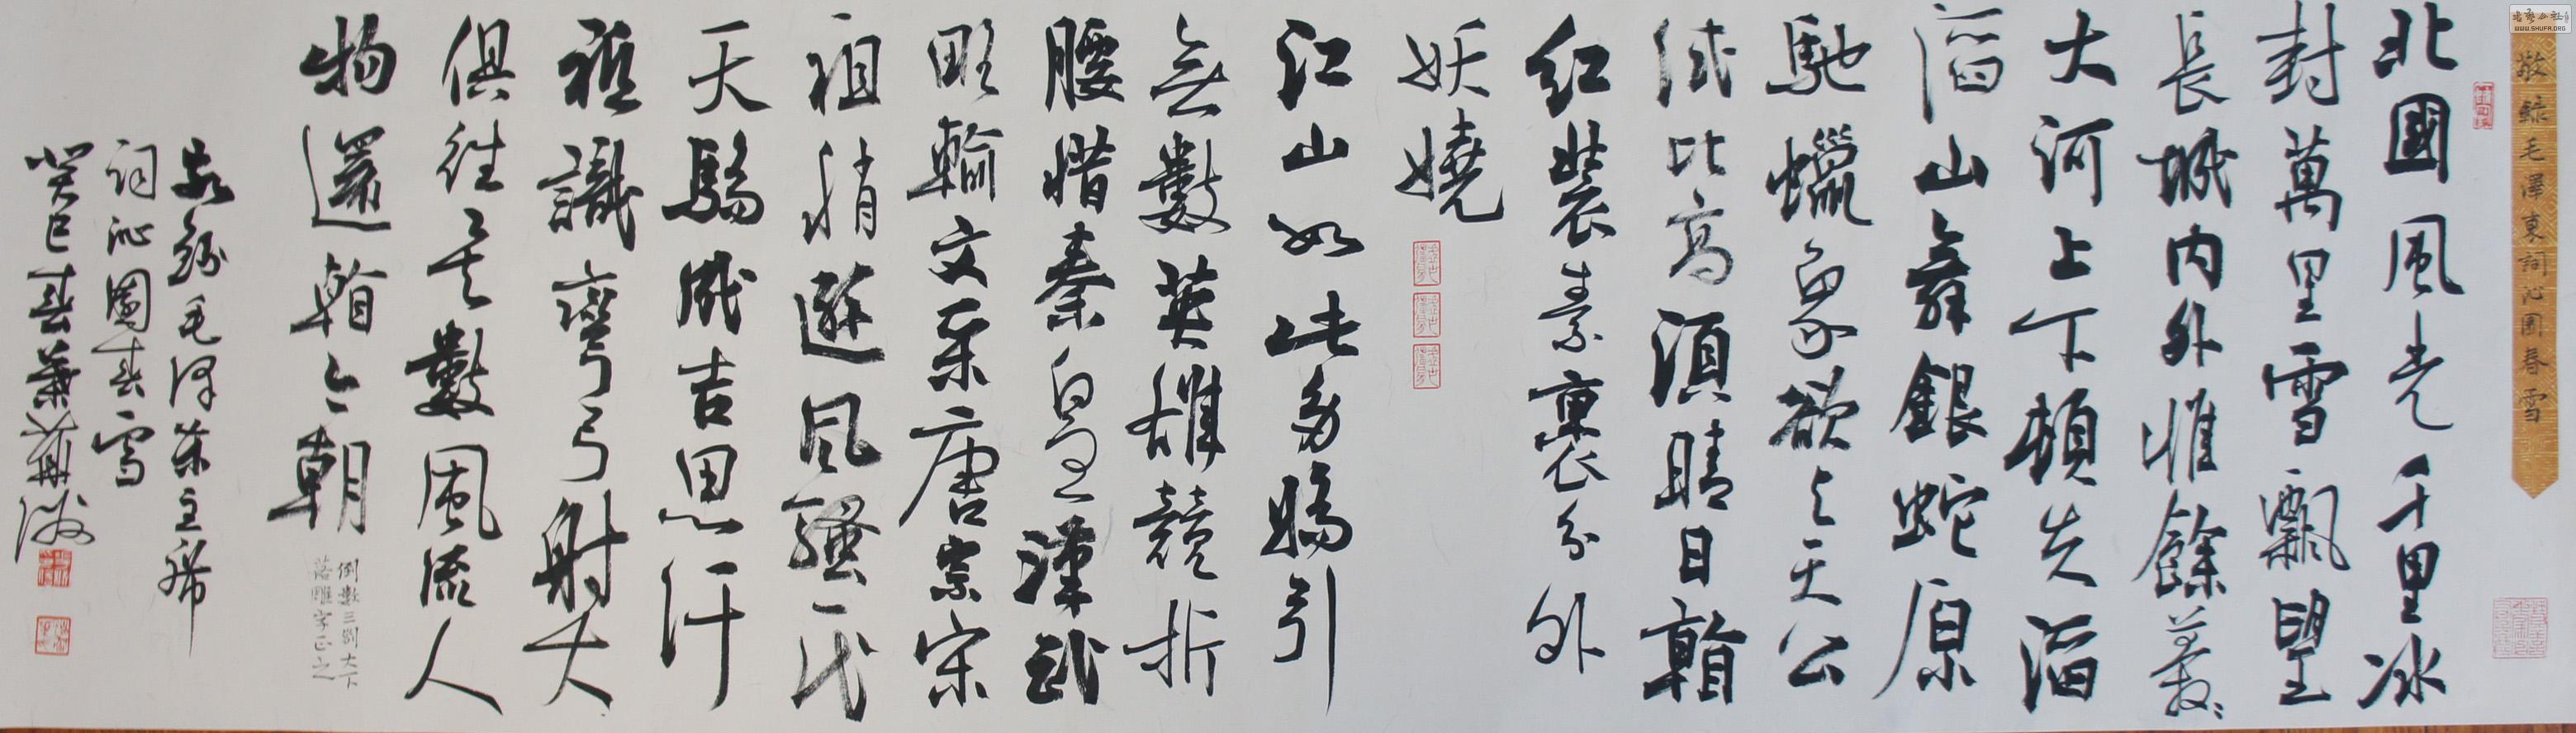 敬錄毛澤東詞沁園春雪
北國風光千里冰
封萬里雪飄望
長城內外惟餘莽〻
大河上下頓失滔
滔山舞銀蛇原
馳蠟象欲與天公
試比高須晴日看
紅裝素裹分外
妖嬈
江山如此多嬌引
無數英雄競折
腰惜秦皇漢武
略輸文采唐宗宋
祖稍遜風騷一代
天驕成吉思汗
祗識彎弓射大
俱往矣數風流人
物還看今朝
倒數三列大下
落雕字正之
敬錄毛澤東主席
詞沁園春雪
癸巳春
WWW.SHUFA.ORG